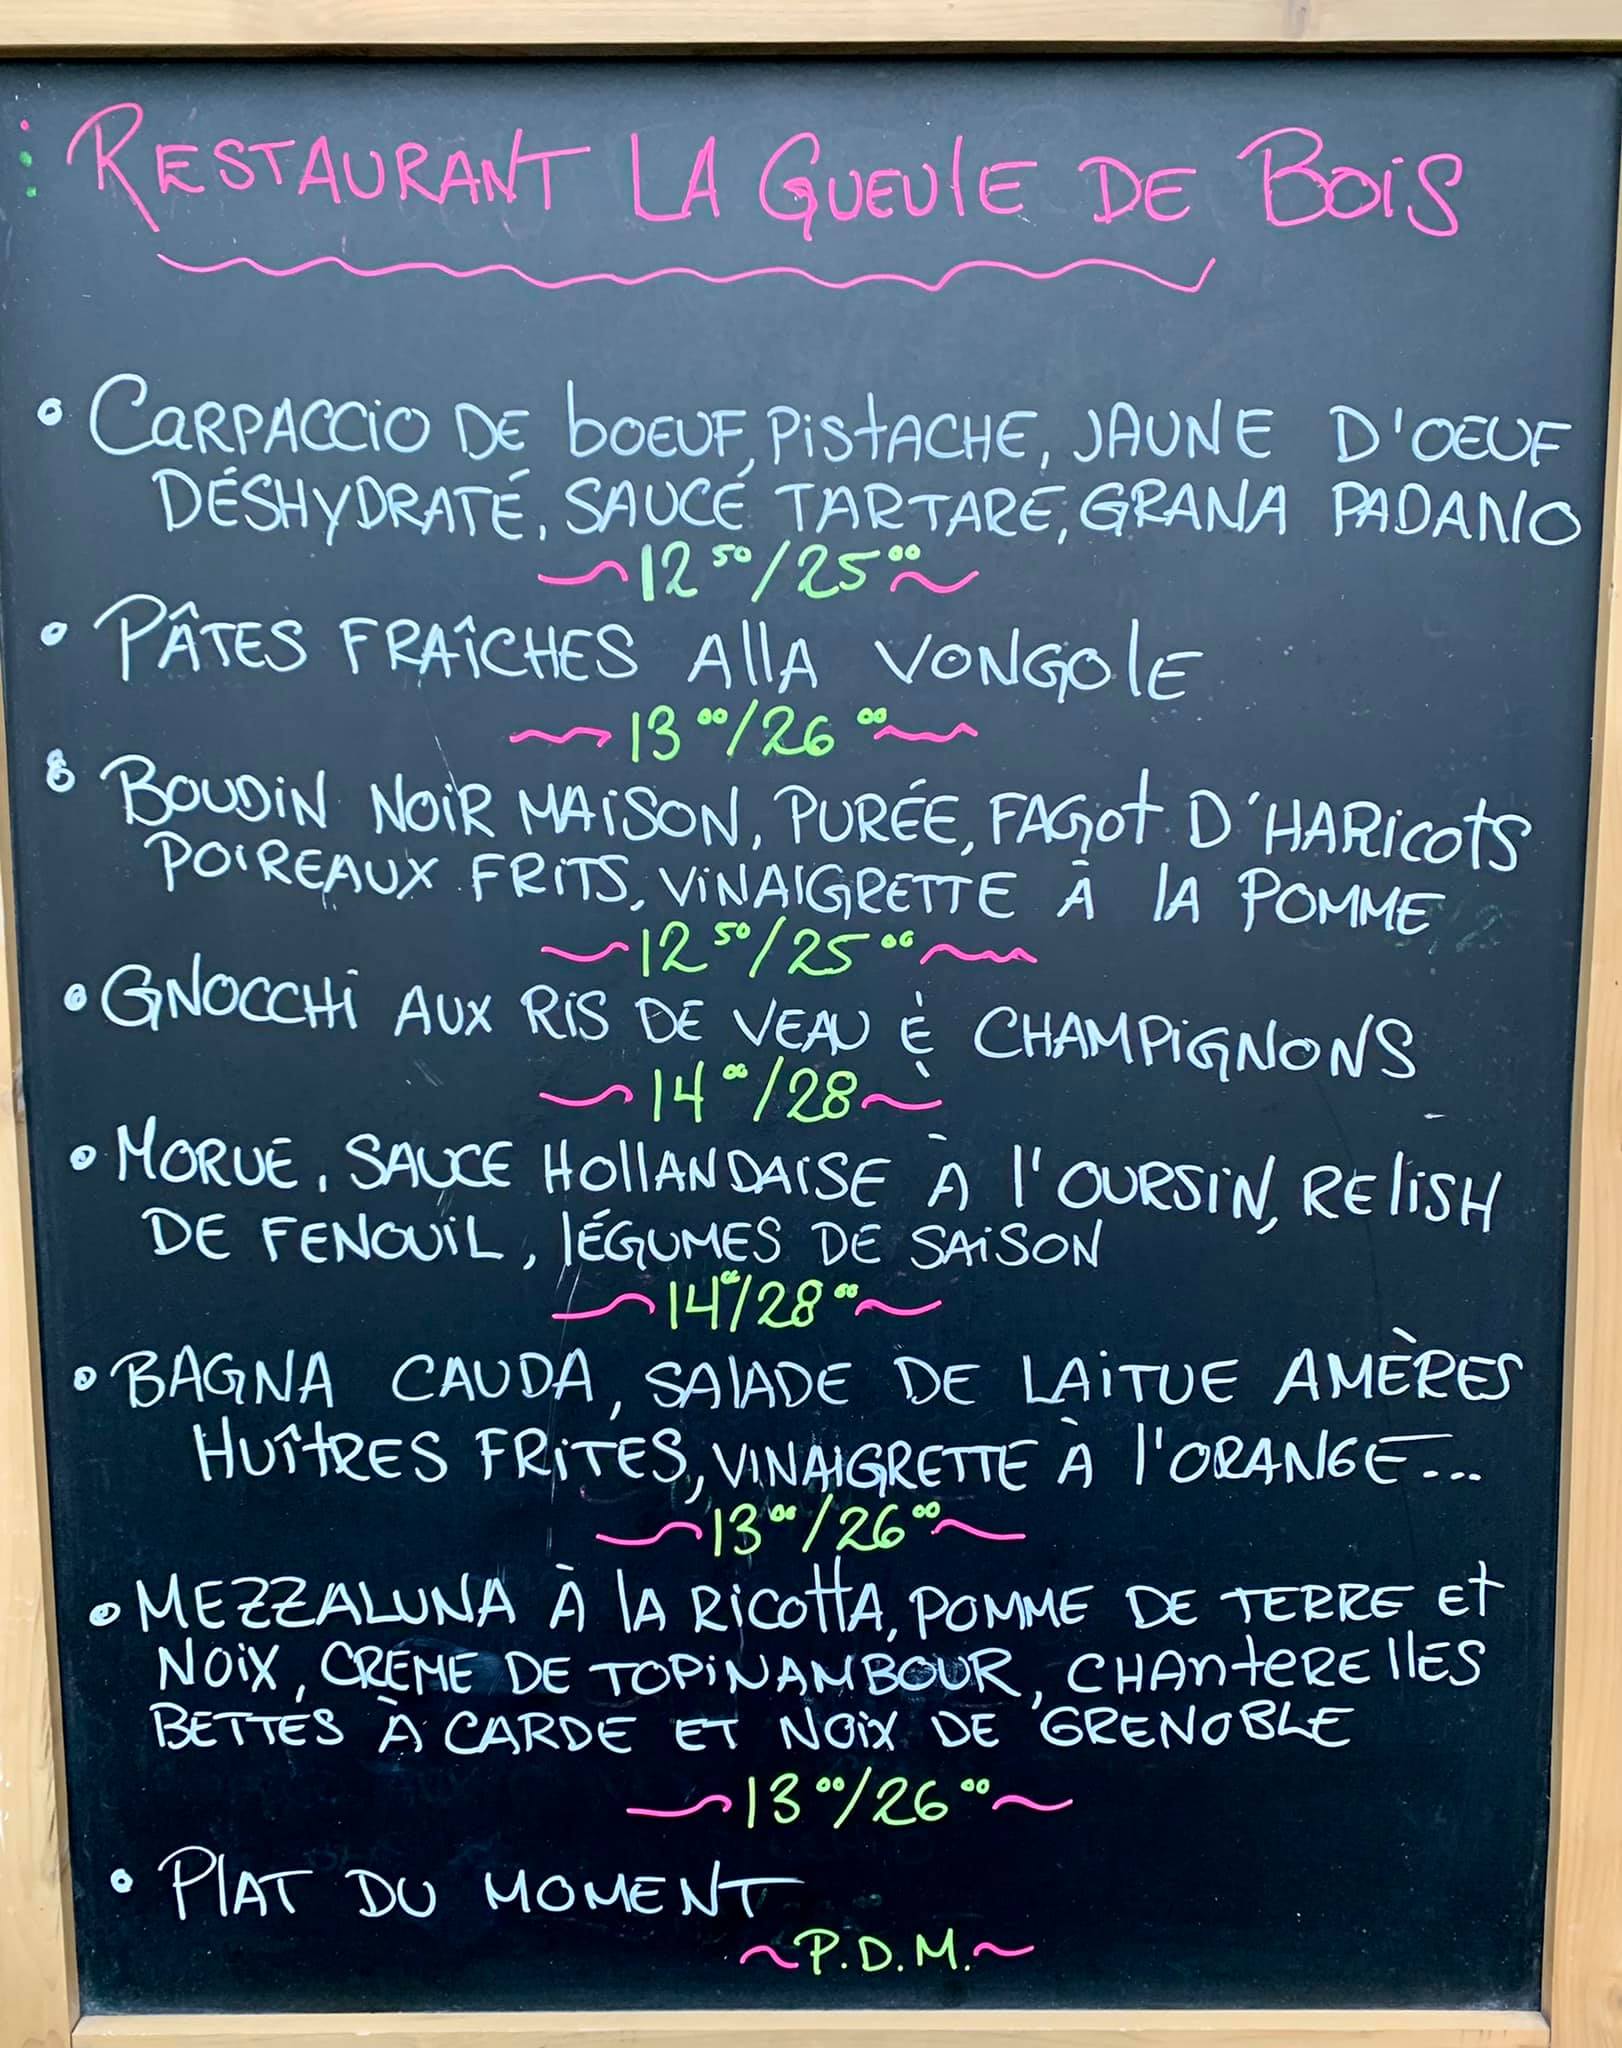 RESTAURANT LA GUEULE DE BOIS
CARPACCIO DE BOEUF, PISTACHE, JAUNE D'OEUF
DÉSHYDRATÉ, SAUCE TARTARE, GRANA PADANO
12 50/25 00
PÂTES FRAÎCHES ALLA VONGOLE
13 00/26 00
BOUDIN NOIR MAISON, PURÉE, FAGOT D'HARICOTS
POIREAUX FRITS, VINAIGRETTE À LA POMME
12 50/25 00
GNOCCHI AUX RIS DE VEAU & CHAMPIGNONS
14 00/28
MORUE, SAUCE HOLLANDAISE À L'OURSIN, RELISH
DE FENOUIL, LÉGUMES DE SAISON
14 00/28 00
BAGNA CAUDA, SALADE DE LAITUE AMÈRES
HUÎTRES FRITES, VINAIGRETTE À L'ORANGE...
13 00/26 00
MEZZALUNA À LA RICOTTA, POMME DE TERRE ET
NOIX, CREME DE TOPINAMBOUR, CHANTERELLES
BETTES À CARDE ET NOIX DE GRENOBLE
13 00/26 00
PLAT DU MOMENT
P.D.M.